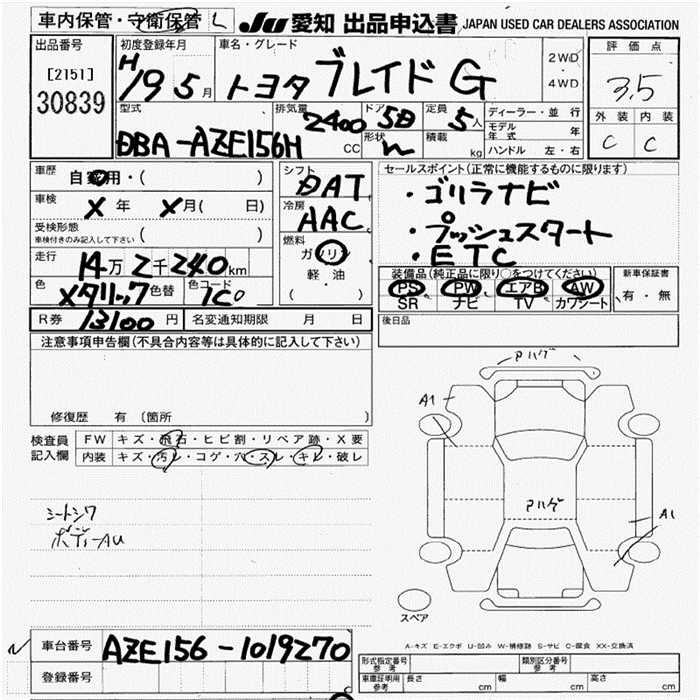 車内保管・守衛保管 JU 愛知 出品申込書 JAPAN USED CAR DEALERS ASSOCIATION
出品番号 初度登録年月 車名・グレード 評価点
[2151] H19 5月 トヨタ ブレイド G 2WD・4WD 3.5
30839
外装 内装
型式 排気量 ドア 定員 ディーラー・並行
DBA-AZE156H 2400CC 5D 5人 モデル年式 年
形状 積載 kg ハンドル 左・右 C C
車歴 自家用・( ) シフト セールスポイント(正常に機能するものに限ります)
DAT ・ゴリラナビ
車検 X年 X月( 日) 冷房
AAC ・プッシュスタート
受検形態 ( )
車検付きのみ記入して下さい
燃料 ・ETC
走行 14万2千240km ガソリン
軽・油
( )
装備品(純正品に限り○をつけてください) 新車保証書
色 メタリック 色替 色コード 1C0 PS PW エアB AW 有・無
SR ナビ TV カワシート
R券 13100円 名変通知期限 月 日 後日品
注意事項申告欄(不具合内容等は具体的に記入して下さい)
修復歴 有 (箇所 )
検査員記入欄 FW キズ・飛石・ヒビ割・リペア跡・X要
内装 キズ・汚レ・コゲ・穴・スレ・キレ・破レ
Aハゲ
A1
Aハゲ
A1
シートシワ
ボデーAU
スペア
A-キズ E-エクボ U-凹み W-補修跡 S-サビ C-腐食 XX-交換済
車台番号 AZE156-1019270
登録番号
形式指定番号 参考 類別区分番号 参考
車庫証明用 参考 長さ cm 幅 cm 高さ cm